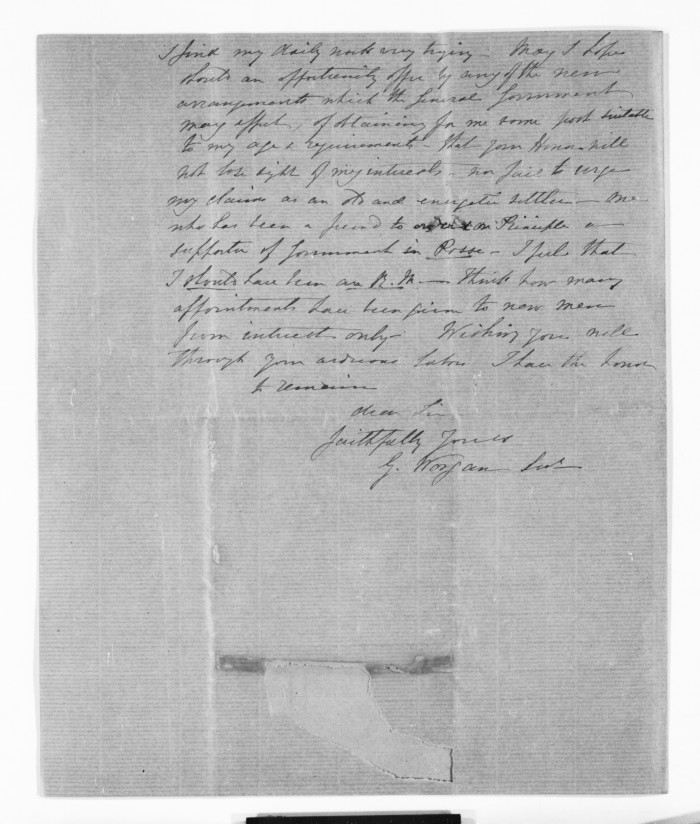 I find my daily work very trying - May I hope
should an opportunity offer by any of the new
arrangements which the General Government
may effect, of obtaining for me some post suitable
to my age & requirements - that your Honor will
not lose sight of my interests - nor fail to urge
my claims as an old and energetic settler - one
who has been a friend to order & on Principle a
supporter of Government in Posse - I feel that
I should have been an R. M. - think how many
appointments have been given to new men
from interest only - Wishing you well
through your arduous labors I have the honor
to remain
dear Sir
faithfully Yours
G. Worgan Senr